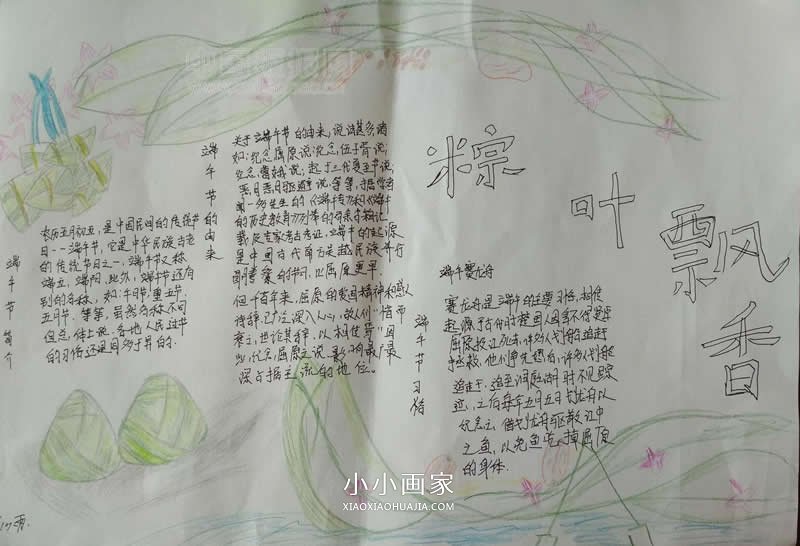 粽叶飘香
端午节简介
农历五月初五,是中国民间的传统节
日--端午节,它是中华民族古老
的传统节日之一。端午节又称
端五,端阳。此外,端午节还有
别的名称,如:午日节、重五节、
五月节、等等,虽然名称不同
但总体上说,各地人民过节
的习俗还是同多于异的。
端午节的由来
关于端午节的由来,说法甚多诸
如:纪念屈原说;纪念伍子胥说;
纪念曹娥说;起于三代夏至节说;
恶月恶日驱避说,等等,据学者
闻一多先生的《端午考》和《端午
的历史教育》
载及专家考古考证,端午的起源
是中国古代南方吴越民族举行
图腾祭的节日,比屈原更早。
但千百年来,屈原的爱国精神和感人
诗辞,已广泛深入人心,故人们"惜而
哀之,世论其辞,以相传焉"因
此,纪念屈原之说,影响最广最
深占据主流的地位。
端午节习俗
端午赛龙舟
赛龙舟是端午的主要习俗,相传
起源于古时楚国人因舍不得贤臣
屈原投江死去,许多人划船追赶
拯救,他们争先恐后,
追至洞庭湖时不见踪
迹,之后每年五月五日划龙舟以
纪念之,借划龙舟驱散江中
之鱼,以免鱼吃掉屈原
的身体.
小小画家
XIAOXIAOHUAJIA.COM